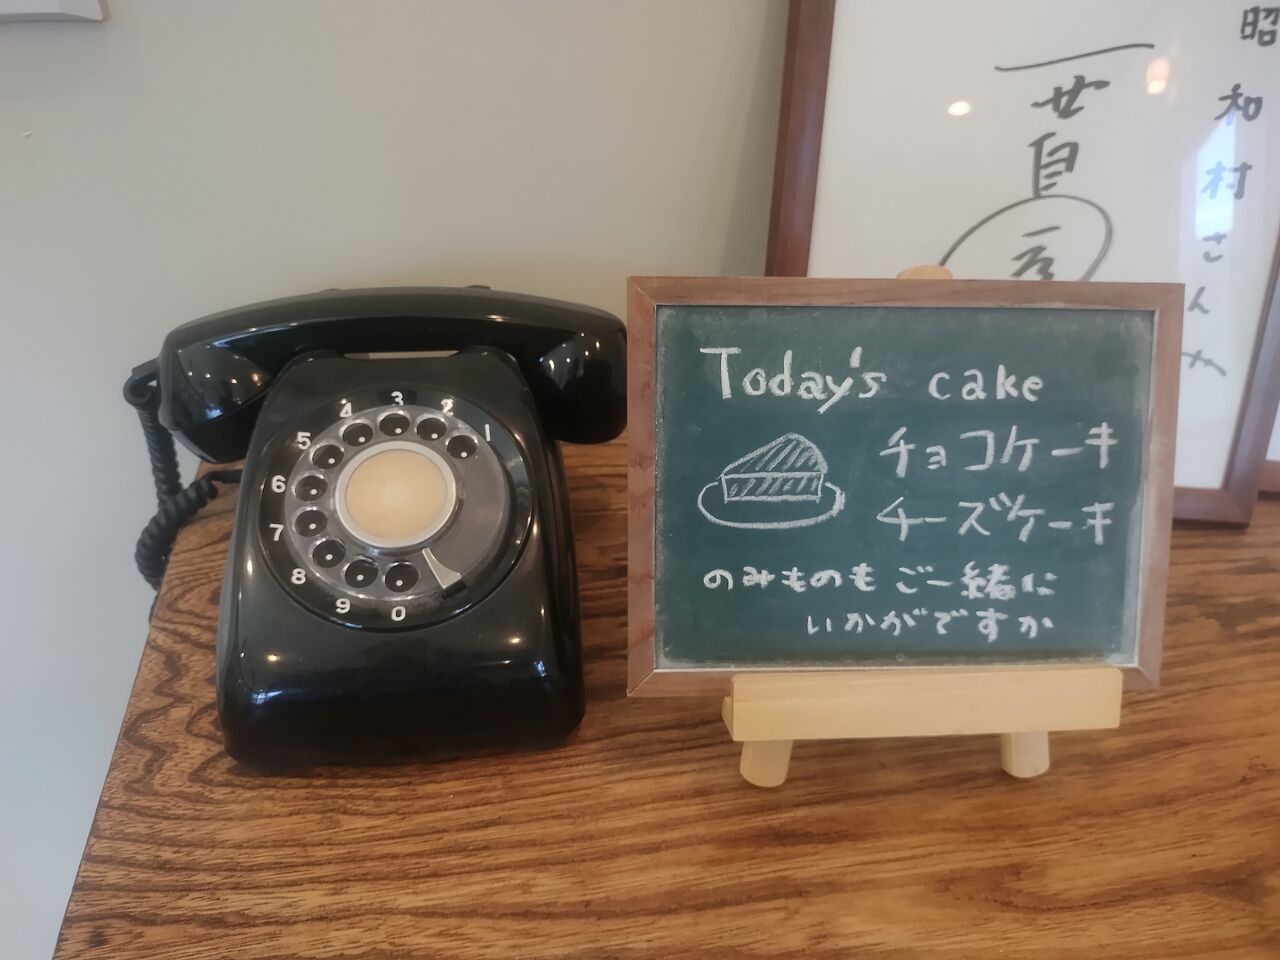 1
2
3
4
5
6
7
8
9
0
Today's cake
チョコケーキ
チーズケーキ
のみものもご一緒に
いかがですか
昭和村さんへ